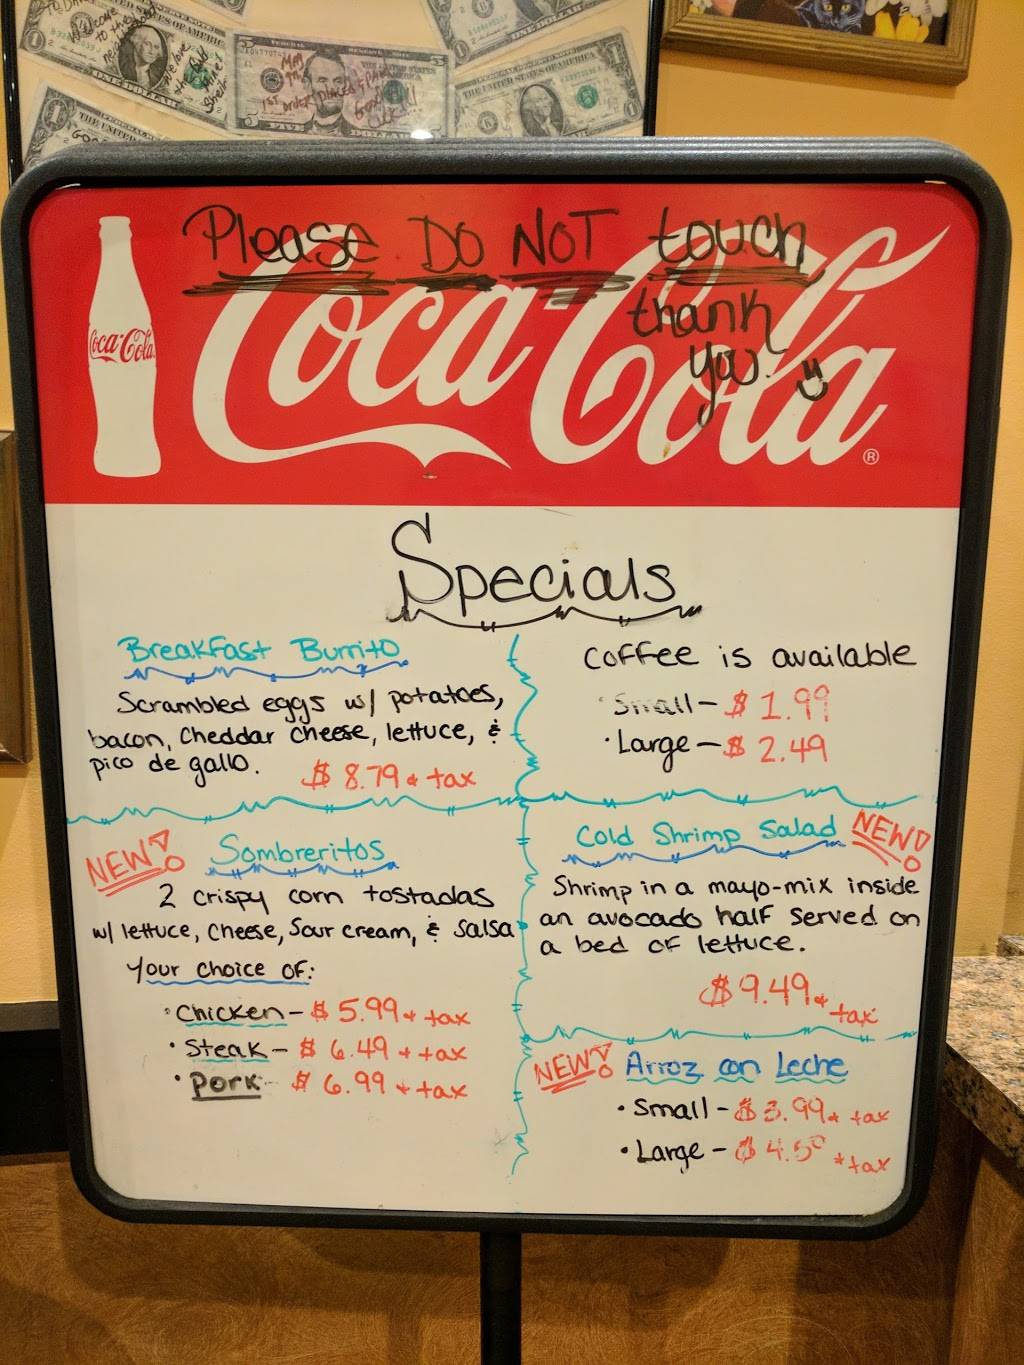 WELCOME
TO THE
May
1st order placed
FIVE DOLLARS
THE UNITED STATES OF AMERICA
ONE DOLLAR
Please DO NOT touch
thank
you.
Coca-Cola
Coca-Cola
®
Specials
Breakfast Burrito
Scrambled eggs w/ potatoes,
bacon, cheddar cheese, lettuce, &
pico de gallo.
$ 8.79 + tax
Coffee is available
· Small - $ 1.99
· Large - $ 2.49
NEW! Sombreritos
2 crispy corn tostadas
w/ lettuce, cheese, sour cream, & salsa
Your choice of:
· Chicken - $ 5.99 + tax
· Steak - $ 6.49 + tax
· Pork - $ 6.99 + tax
Cold Shrimp Salad NEW!
Shrimp in a mayo-mix inside
an avocado half served on
a bed of lettuce.
$ 9.49 + tax
NEW! Arroz con Leche
· Small - $ 3.99 + tax
· Large - $ 4.50 + tax